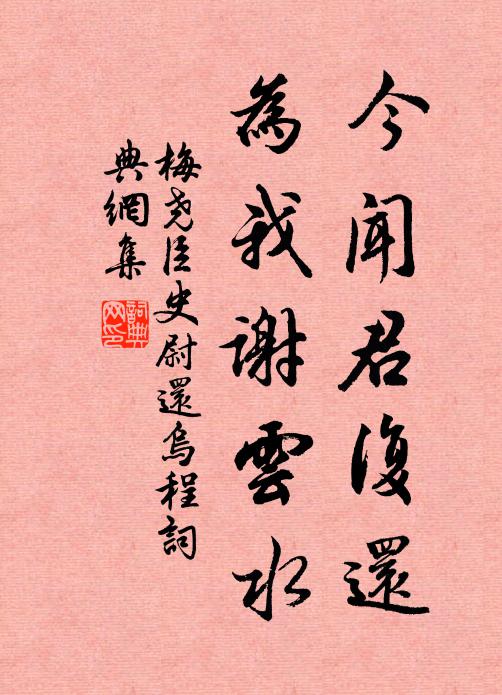 今聞君復還
為我謝雲水
梅尧臣史尉還烏程詞
典網集
詞典網印